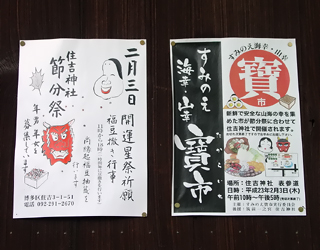 二月三日
住吉神社
節分祭
開運星祭祈願
福豆撒き行事
年男年女を
募集しています
博多区住吉3-1-51
電話 092-291-2670
すみのえ
海幸・山幸
寶市
すみのえ海幸・山幸
寶
市
新鮮で安全な山海の幸を集
めた市が節分祭に合わせて
住吉神社で開催されます。
場所：住吉神社 表参道
日時：平成23年2月3日(木)
午前10時～午後5時